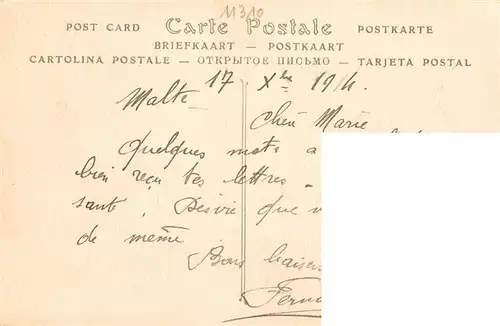 11310
POST CARD Carte Postale POSTKARTE
BRIEFKAART — POSTKAART
CARTOLINA POSTALE — ОТКРЫТОЕ ПИСЬМО — TARJETA POSTAL
Malte 17 Xbre 1914.
Cher Marie
Quelques mots a
bien reçu tes lettres.
santé. Désire que v
de même
Bons baisers
Fern